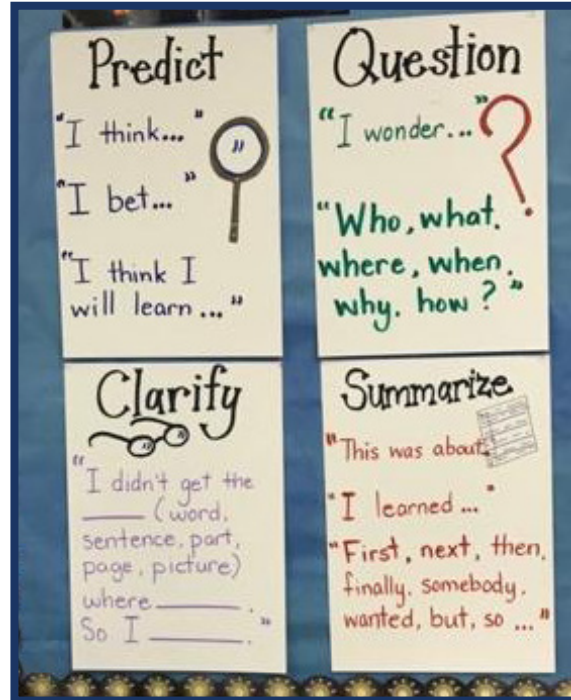 Predict
"I think..."
"I bet..."
"I think I
will learn..."
Question
"I wonder..."
"Who, what,
where, when,
why, how?"
Clarify
"I didn't get the
____ (word,
sentence, part,
page, picture)
where ____.
So I ____."
Summarize
"This was about
"I learned..."
"First, next, then,
finally, somebody,
wanted, but, so ..."